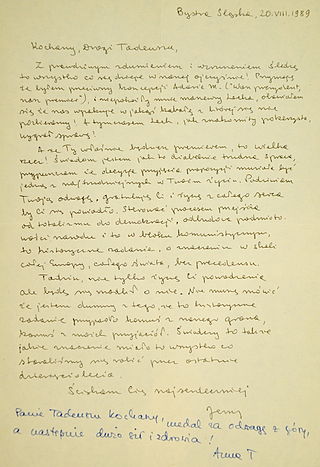 Bystra Śląska, 20.VIII.1989
Kochany, Drogi Tadeuszu,
Z prawdziwym zdumieniem i wzruszeniem śledzę
to wszystko co się dzieje w naszej ojczyźnie! Przyznaję
że byłem przeciwny koncepcji Adasia M. ("Wasz prezydent,
nasz premier"), i niepokoiły mnie manewry Lecha, obawiałem
się że nas wpakuje w jakąś kabałę z której się nie
pozbieramy! A tymczasem Lech, jak znakomity pokerzysta,
wygrał sprawę!
A że Ty właśnie będziesz premierem, to wielka
rzecz! Świadom jestem jak to diabelnie trudna sprawa,
przypuszczam że decyzja przyjęcia propozycji musiała być
jedną z najtrudniejszych w Twoim życiu. Podziwiam
Twoją odwagę, gratuluję Ci i życzę z całego serca
by Ci się powiodło. Sterować procesem przejścia
od totalizmu do demokracji, odbudowę podmioto-
wości narodu i to w bloku komunistycznym,
to historyczne zadanie, o znaczeniu w skali
całej Europy, całego świata, bez precedensu.
Tadziu, nie tylko życzę Ci powodzenia
ale będę się modlił o nie. Nie muszę mówić
że jestem dumny z tego, że to historyczne
zadanie przypadło komuś z naszego grona,
komuś z moich przyjaciół. Świadczy to także
jakie znaczenie miało to wszystko co
staraliśmy się robić przez ostatnie
dziesięciolecia.
Ściskam Cię najserdeczniej
Jerzy
Panie Tadeuszu Kochany, medal za odwagę z góry,
a następnie dużo sił i zdrowia!
Anna T